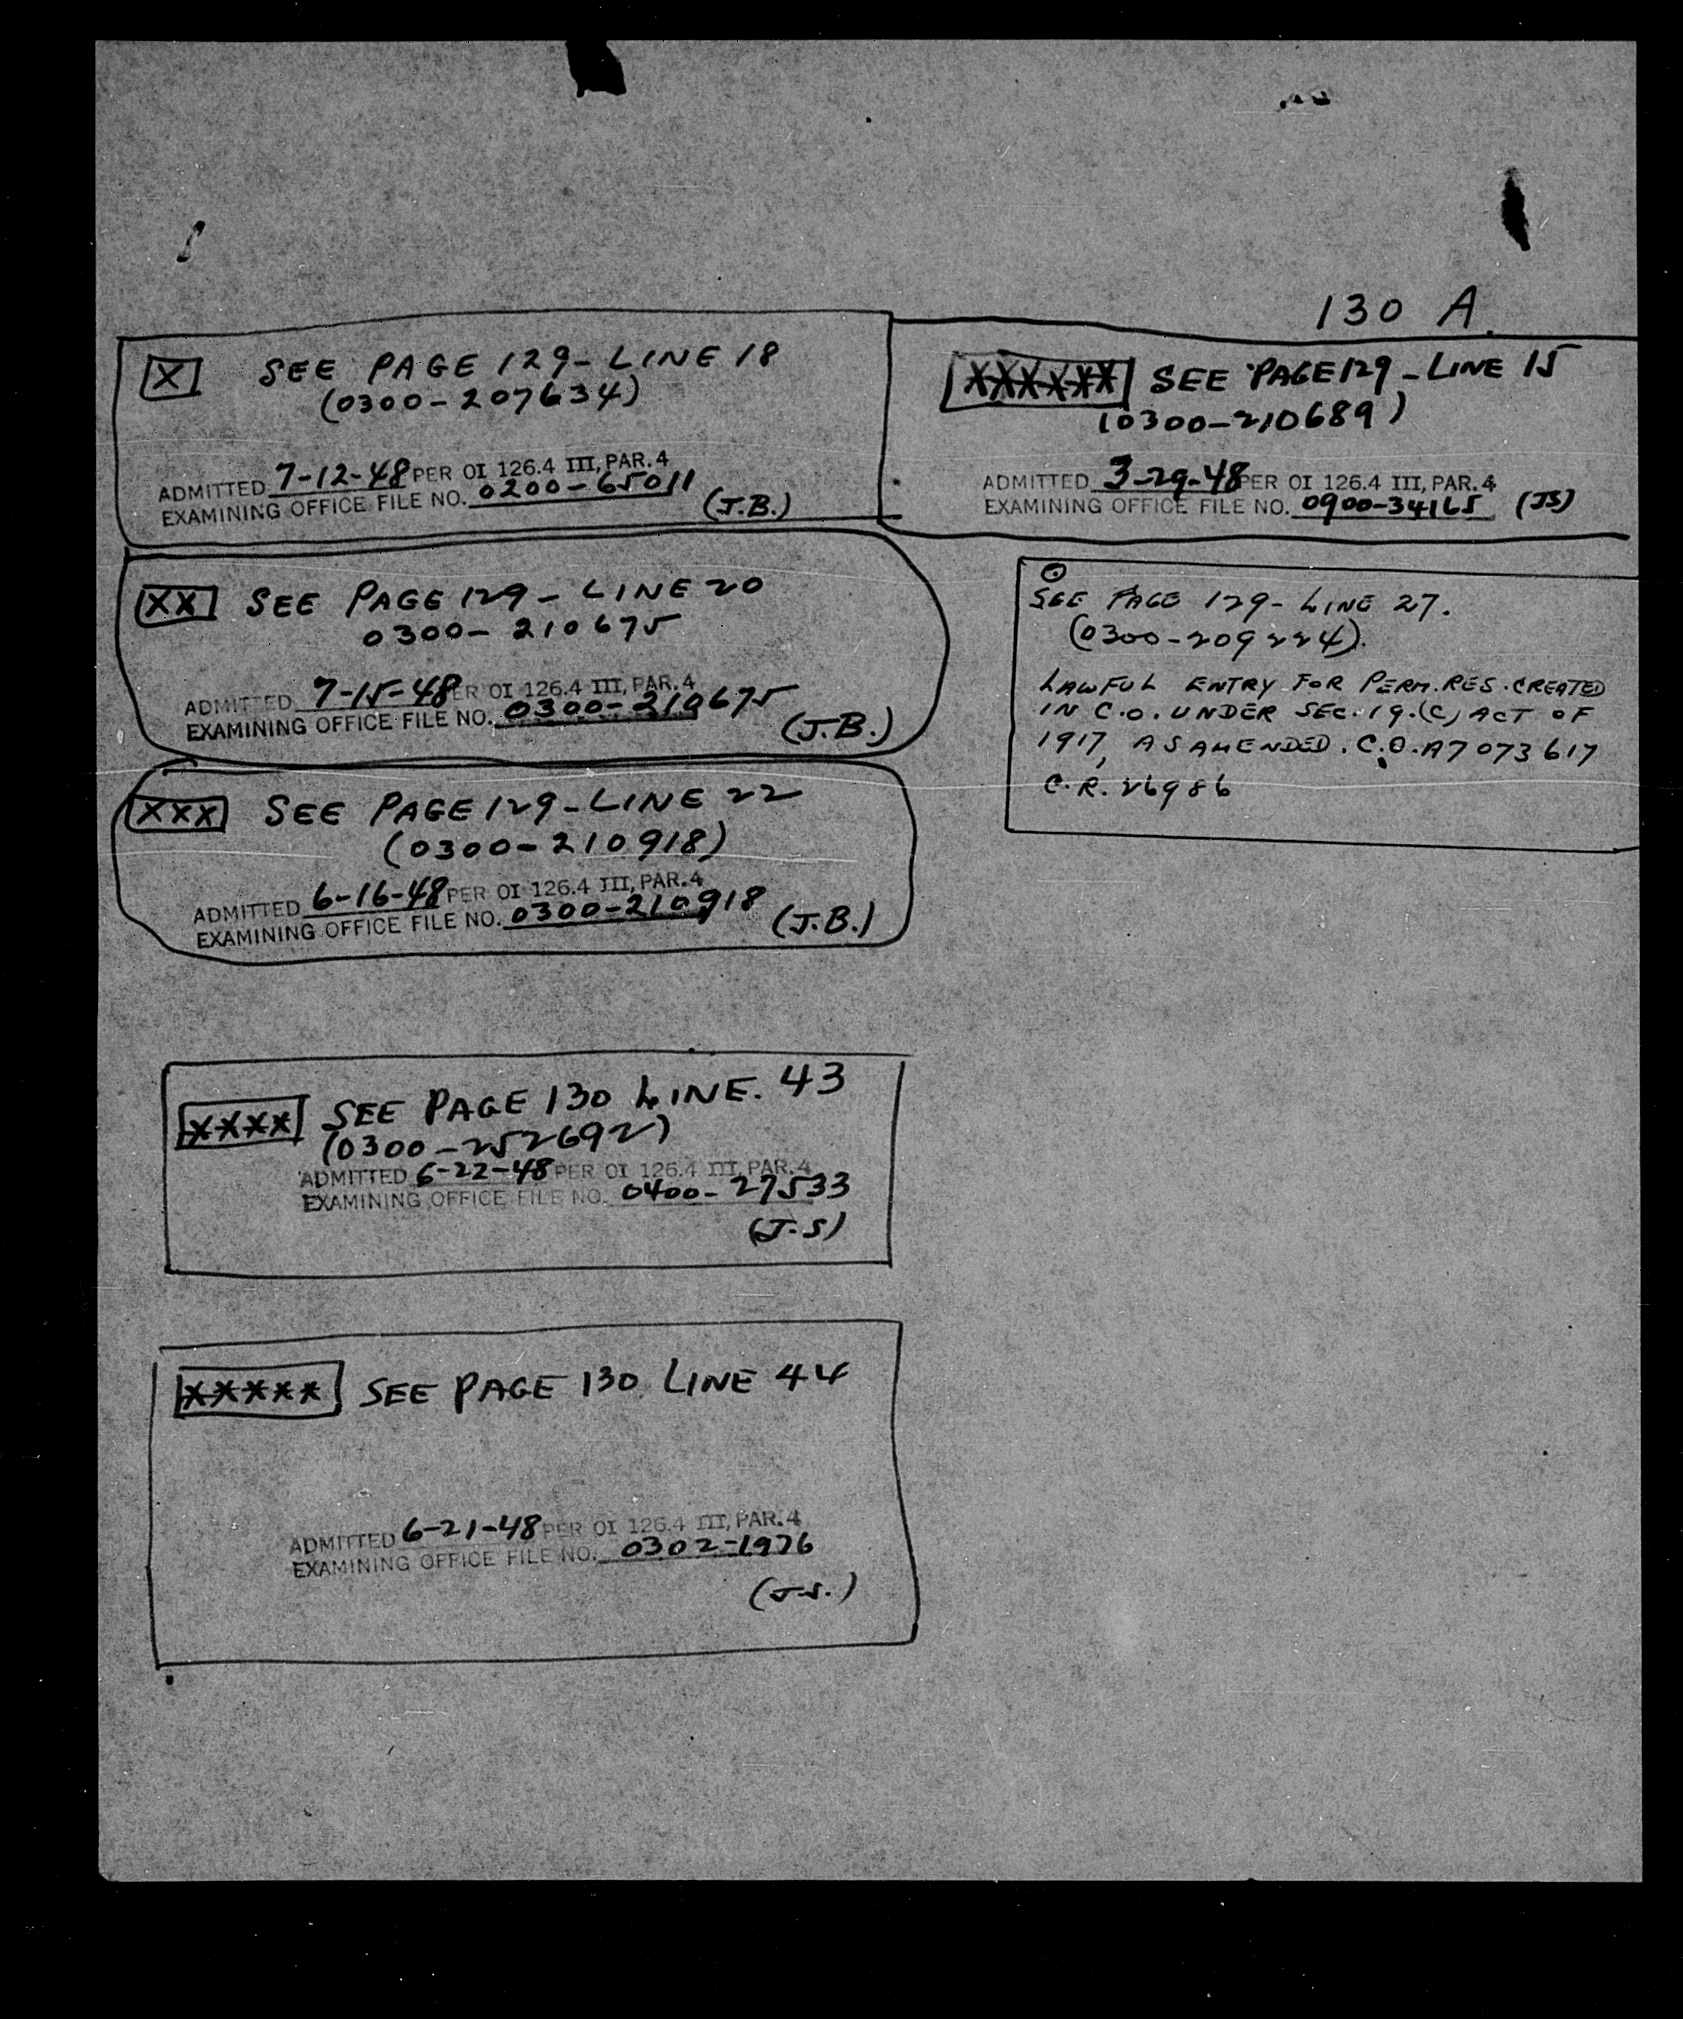 130 A.
X SEE PAGE 129 - LINE 18
(0300-207634)
ADMITTED 7-12-48 PER OI 126.4 III, PAR. 4
EXAMINING OFFICE FILE NO. 0200-65011
(J.B.)
XX SEE PAGE 129 - LINE 20
0300-210675
ADMITTED 7-15-48 PER OI 126.4 III, PAR. 4
EXAMINING OFFICE FILE NO. 0300-210675
(J.B.)
XXX SEE PAGE 129 - LINE 22
(0300-210918)
ADMITTED 6-16-48 PER OI 126.4 III, PAR. 4
EXAMINING OFFICE FILE NO. 0300-210918
(J.B.)
XXXX SEE PAGE 130 LINE. 43
(0300-252692)
ADMITTED 6-22-48 PER OI 126.4 III, PAR. 4
EXAMINING OFFICE FILE NO. 0400-27533
(J.S)
XXXXX SEE PAGE 130 LINE 44
ADMITTED 6-21-48 PER OI 126.4 III, PAR. 4
EXAMINING OFFICE FILE NO. 0302-1976
(J.S.)
XXXXXX SEE PAGE 129 - LINE 15
(0300-210689)
ADMITTED 3-29-48 PER OI 126.4 III, PAR. 4
EXAMINING OFFICE FILE NO. 0900-34165 (JS)
SEE PAGE 129 - LINE 27.
(0300-209224).
LAWFUL ENTRY FOR PERM. RES. CREATED
IN C.O. UNDER SEC. 19.(C) ACT OF
1917, AS AMENDED. C.O. A7 073 617
C.R. 26986